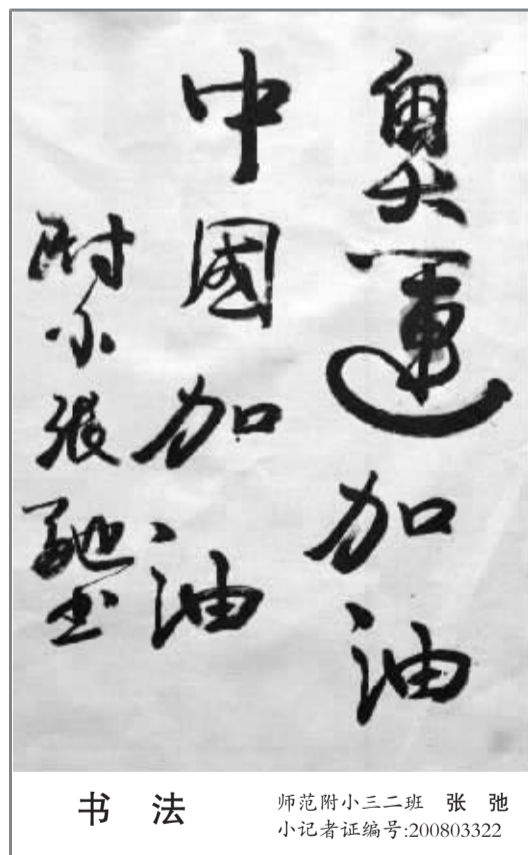 奧運加油
中國加油
附小張馳书
书 法
师范附小三二班 张 弛
小记者证编号:200803322